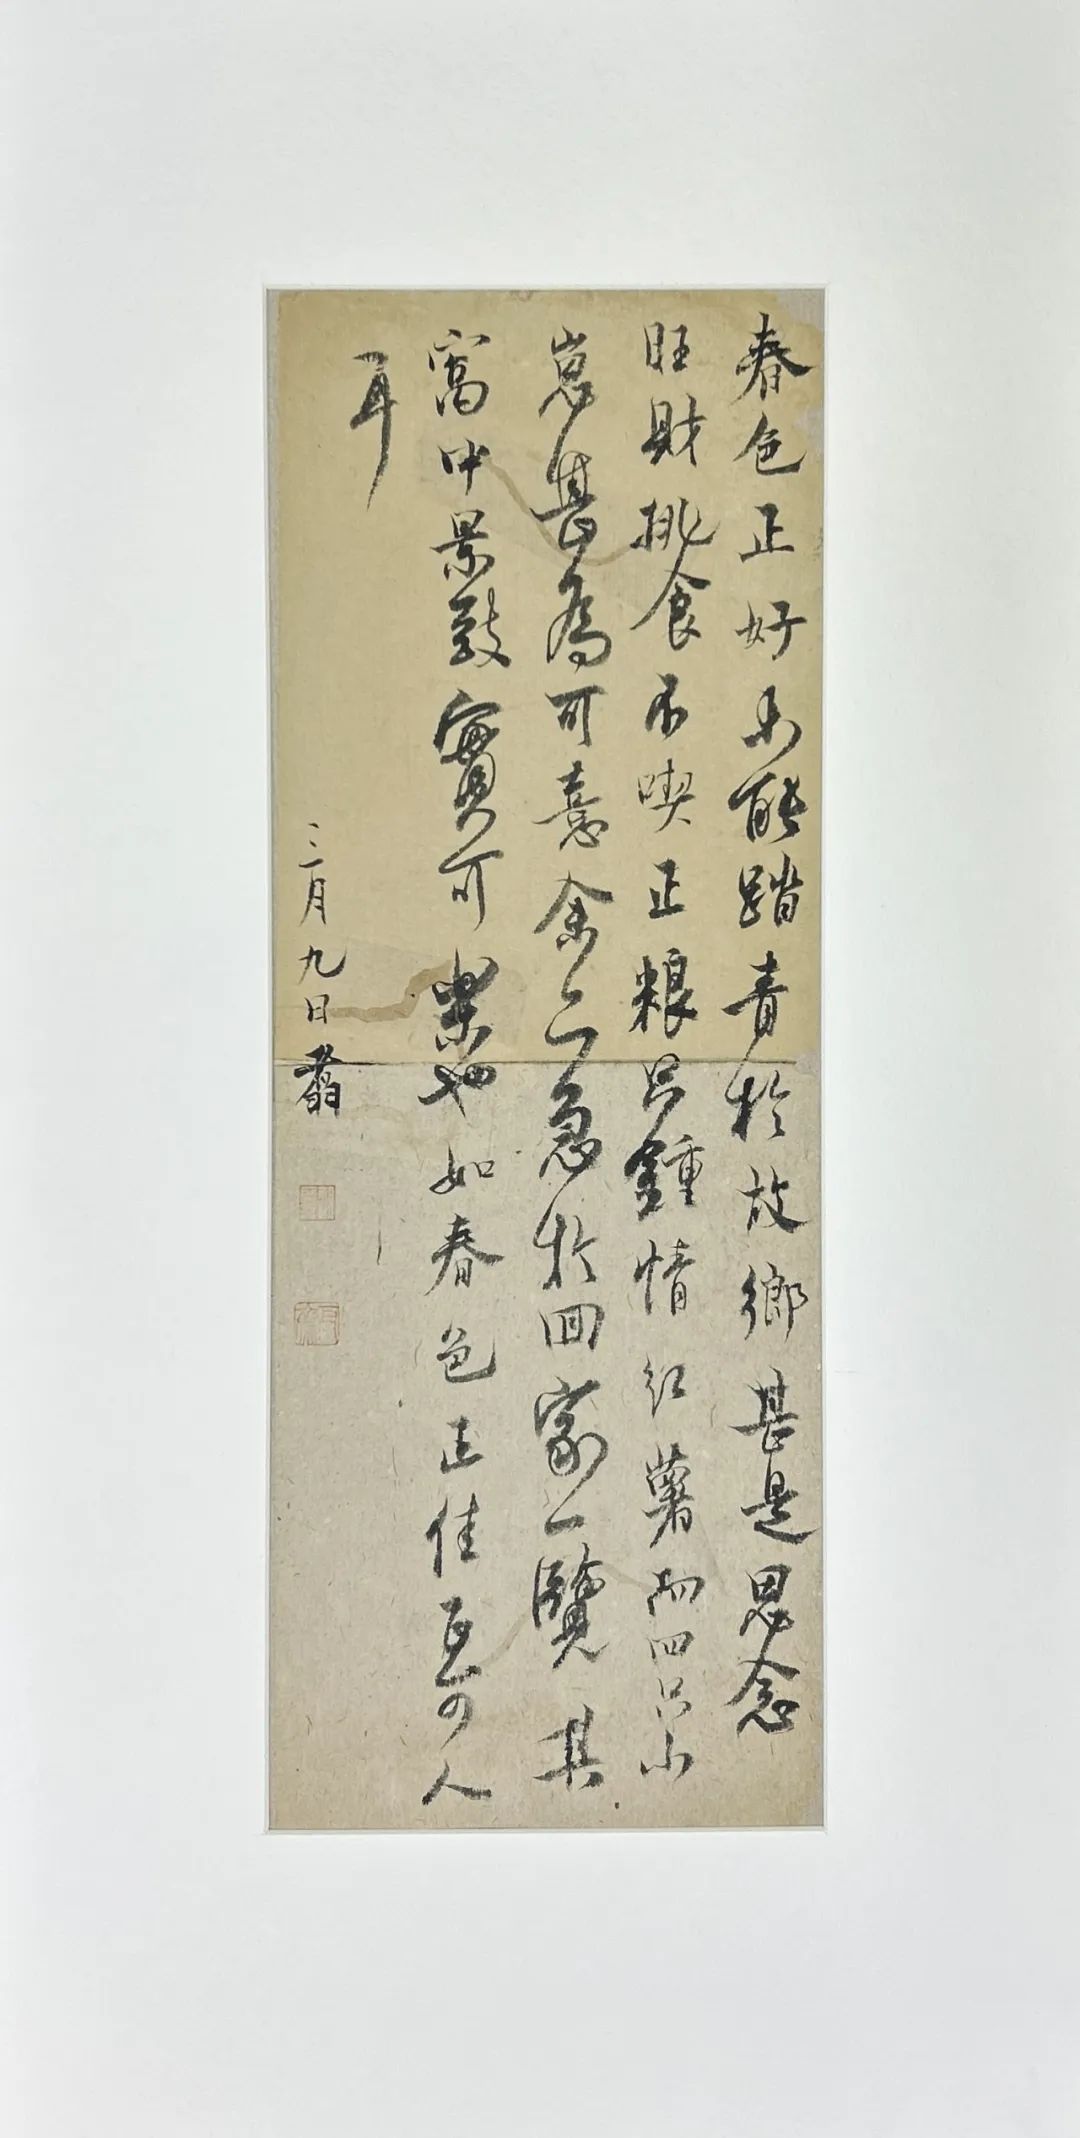 春色正好未能踏青於故鄉甚是思念
旺財挑食不喫正粮只鍾情红薯而四只小
崽甚為可憙余亦急於回家一覽其
窩中景致實可樂也如春色正佳可人
耳
三月九日